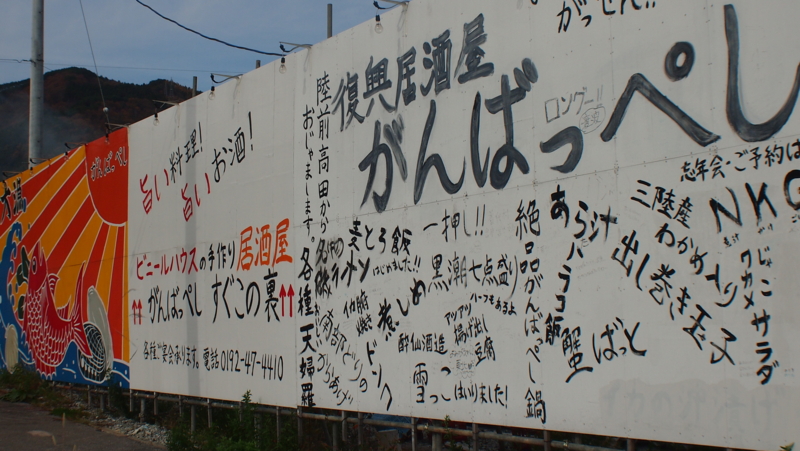 大漁
がんばっぺし
旨い料理!
旨いお酒!
ビニールハウスの手作り居酒屋
がんばっぺし すぐこの裏
各種ご宴会承ります。電話0192-47-4410
陸前高田から
おじゃまします
各種天婦羅
復興居酒屋
がんばっぺし
がっせん!!
ロングー!!
麦とろ飯
はじめました!!
煮しめ
一押し!!
黒潮七点盛り
アツアツ
揚げ出し
豆腐
酔仙酒造
雪っこ
はいりました!
絶品がんばっぺし鍋
あら汁
ハラコ飯
蟹ばっと
出し巻き玉子
三陸産
わかめ
忘年会・ご予約は
NKC
じゃこサラダ
ワカメ